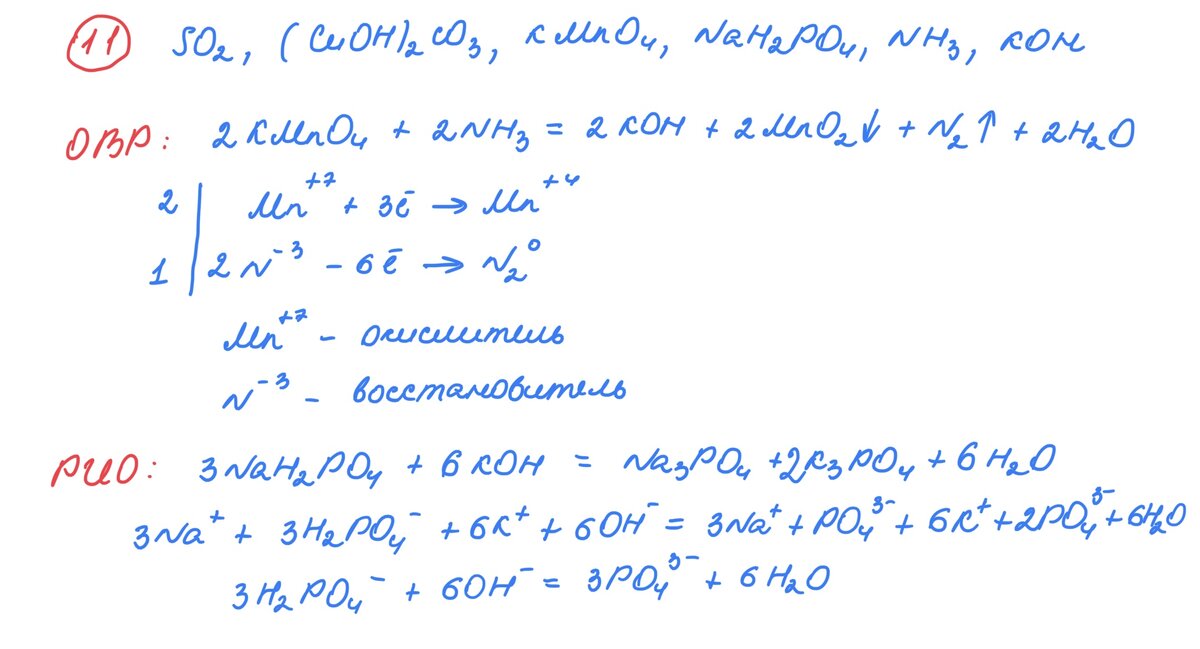 11 SO₂, (CuOH)₂CO₃, KMnO₄, NaH₂PO₄, NH₃, KOH
ОВР: 2KMnO₄ + 2NH₃ = 2KOH + 2MnO₂↓ + N₂↑ + 2H₂O
2 | Mn⁺⁷ + 3ē → Mn⁺⁴
1 | 2N⁻³ - 6ē → N₂⁰
Mn⁺⁷ - окислитель
N⁻³ - восстановитель
РИО: 3NaH₂PO₄ + 6KOH = Na₃PO₄ + 2K₃PO₄ + 6H₂O
3Na⁺ + 3H₂PO₄⁻ + 6K⁺ + 6OH⁻ = 3Na⁺ + PO₄³⁻ + 6K⁺ + 2PO₄³⁻ + 6H₂O
3H₂PO₄⁻ + 6OH⁻ = 3PO₄³⁻ + 6H₂O